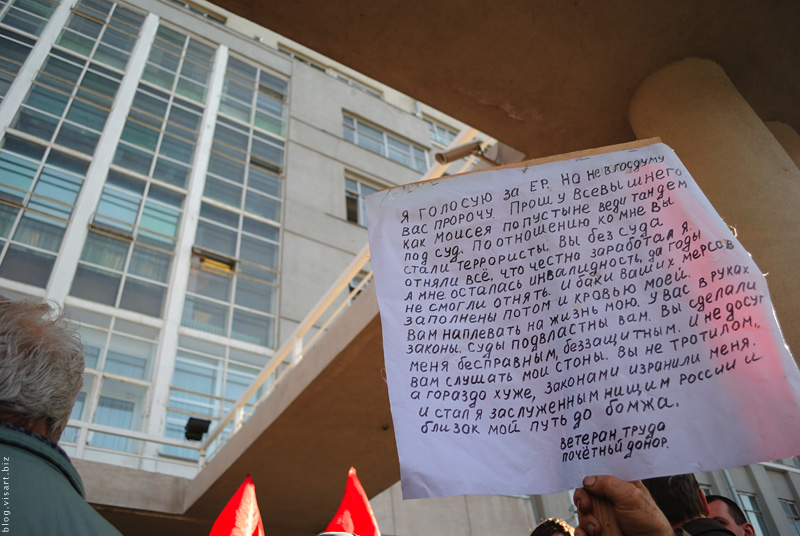 Я ГОЛОСУЮ ЗА ЕР. НО НЕ В ГОСДУМУ
ВАС ПРОРОЧУ. ПРОШУ ВСЕВЫШНЕГО
КАК МОИСЕЯ ПО ПУСТЫНЕ ВЕДИ ТАНДЕМ
ПОД СУД. ПО ОТНОШЕНИЮ КО МНЕ ВЫ
СТАЛИ ТЕРРОРИСТЫ. ВЫ БЕЗ СУДА
ОТНЯЛИ ВСЁ, ЧТО ЧЕСТНО ЗАРАБОТАЛ Я.
А МНЕ ОСТАЛАСЬ ИНВАЛИДНОСТЬ, ДА ГОДЫ
НЕ СМОГЛИ ОТНЯТЬ. И БАКИ ВАШИХ МЕРСОВ
ЗАПОЛНЕНЫ ПОТОМ И КРОВЬЮ МОЕЙ.
ВАМ НАПЛЕВАТЬ НА ЖИЗНЬ МОЮ. У ВАС В РУКАХ
ЗАКОНЫ. СУДЫ ПОДВЛАСТНЫ ВАМ. ВЫ СДЕЛАЛИ
МЕНЯ БЕСПРАВНЫМ, БЕЗЗАЩИТНЫМ. И НЕ ДОСУГ
ВАМ СЛУШАТЬ МОИ СТОНЫ. ВЫ НЕ ТРОТИЛОМ,
А ГОРАЗДО ХУЖЕ, ЗАКОНАМИ ИЗРАНИЛИ МЕНЯ.
И СТАЛ Я ЗАСЛУЖЕННЫМ НИЩИМ РОССИИ И
БЛИЗОК МОЙ ПУТЬ ДО БОМЖА.
ВЕТЕРАН ТРУДА
ПОЧЁТНЫЙ ДОНОР.
blog.visart.biz